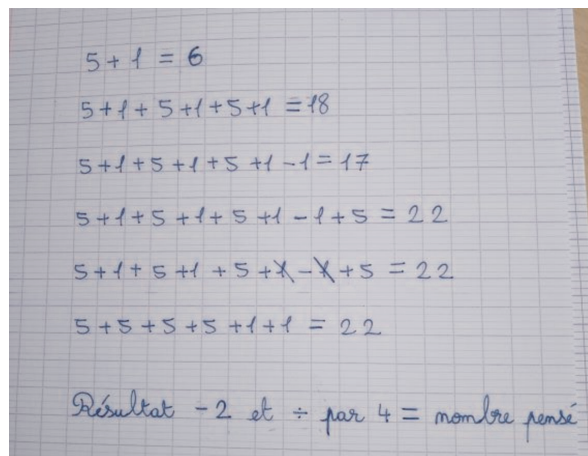 5 + 1 = 6
5 + 1 + 5 + 1 + 5 + 1 = 18
5 + 1 + 5 + 1 + 5 + 1 - 1 = 17
5 + 1 + 5 + 1 + 5 + 1 - 1 + 5 = 22
5 + 1 + 5 + 1 + 5 + 1 - 1 + 5 = 22
5 + 5 + 5 + 5 + 1 + 1 = 22
Résultat - 2 et ÷ par 4 = nombre pensé